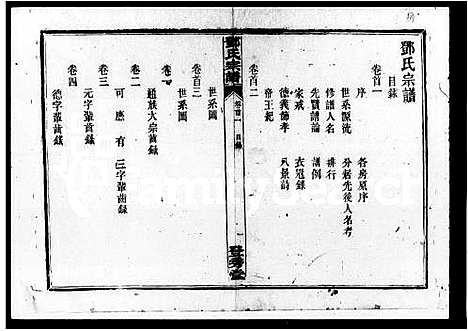 鄧氏宗譜
目錄
卷首一
序 各房原序
世系源流 分遷先後人名考
修譜人名 排行
先賢譜論 譜例
家戒 衣冠錄
德義節孝 八景詩
帝王把
卷首二
鄧氏宗譜
卷首一 目錄
登秀堂
世系圖
卷首三
世系圖
卷一
通族大宗齒錄
卷二
可應有三字輩齒錄
卷三
元字輩齒錄
卷四
德字輩齒錄
FamilySearch